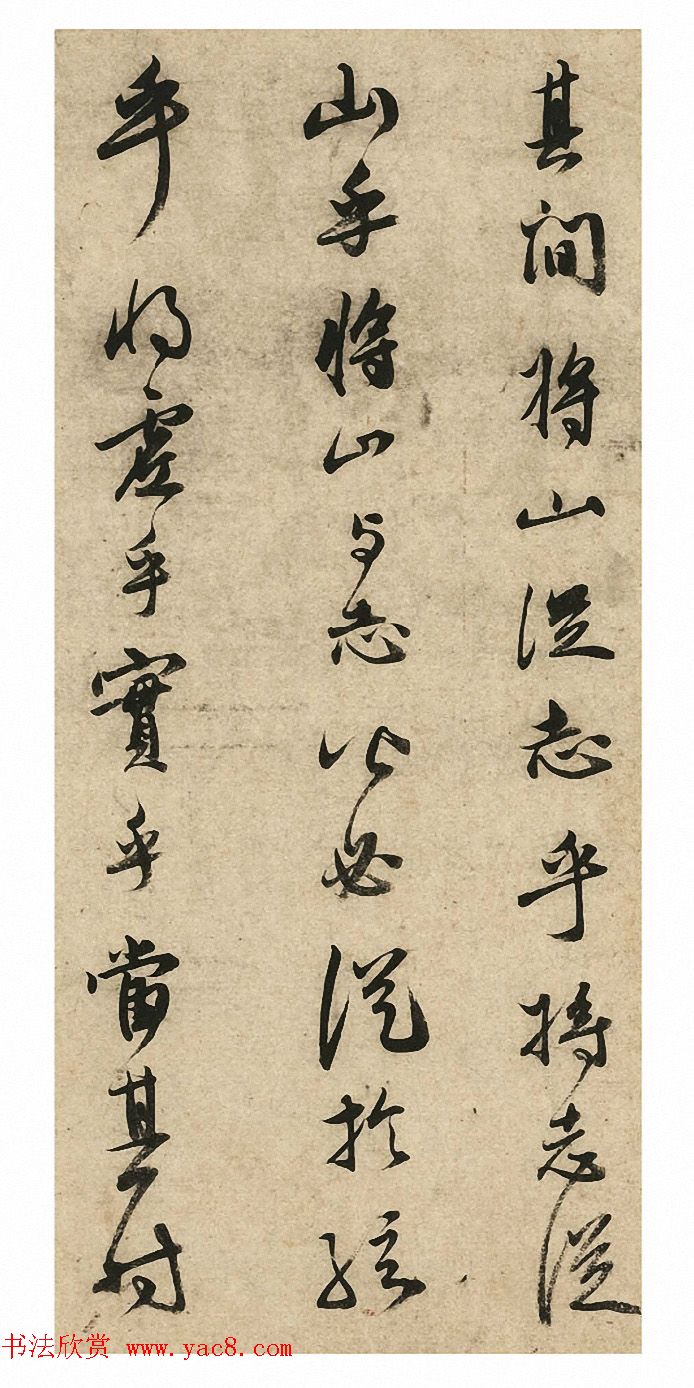 其间将山從志乎將志從
山乎將山与志必從於弦
乎將虛乎實乎當其时
书法欣赏 www.yac8.com